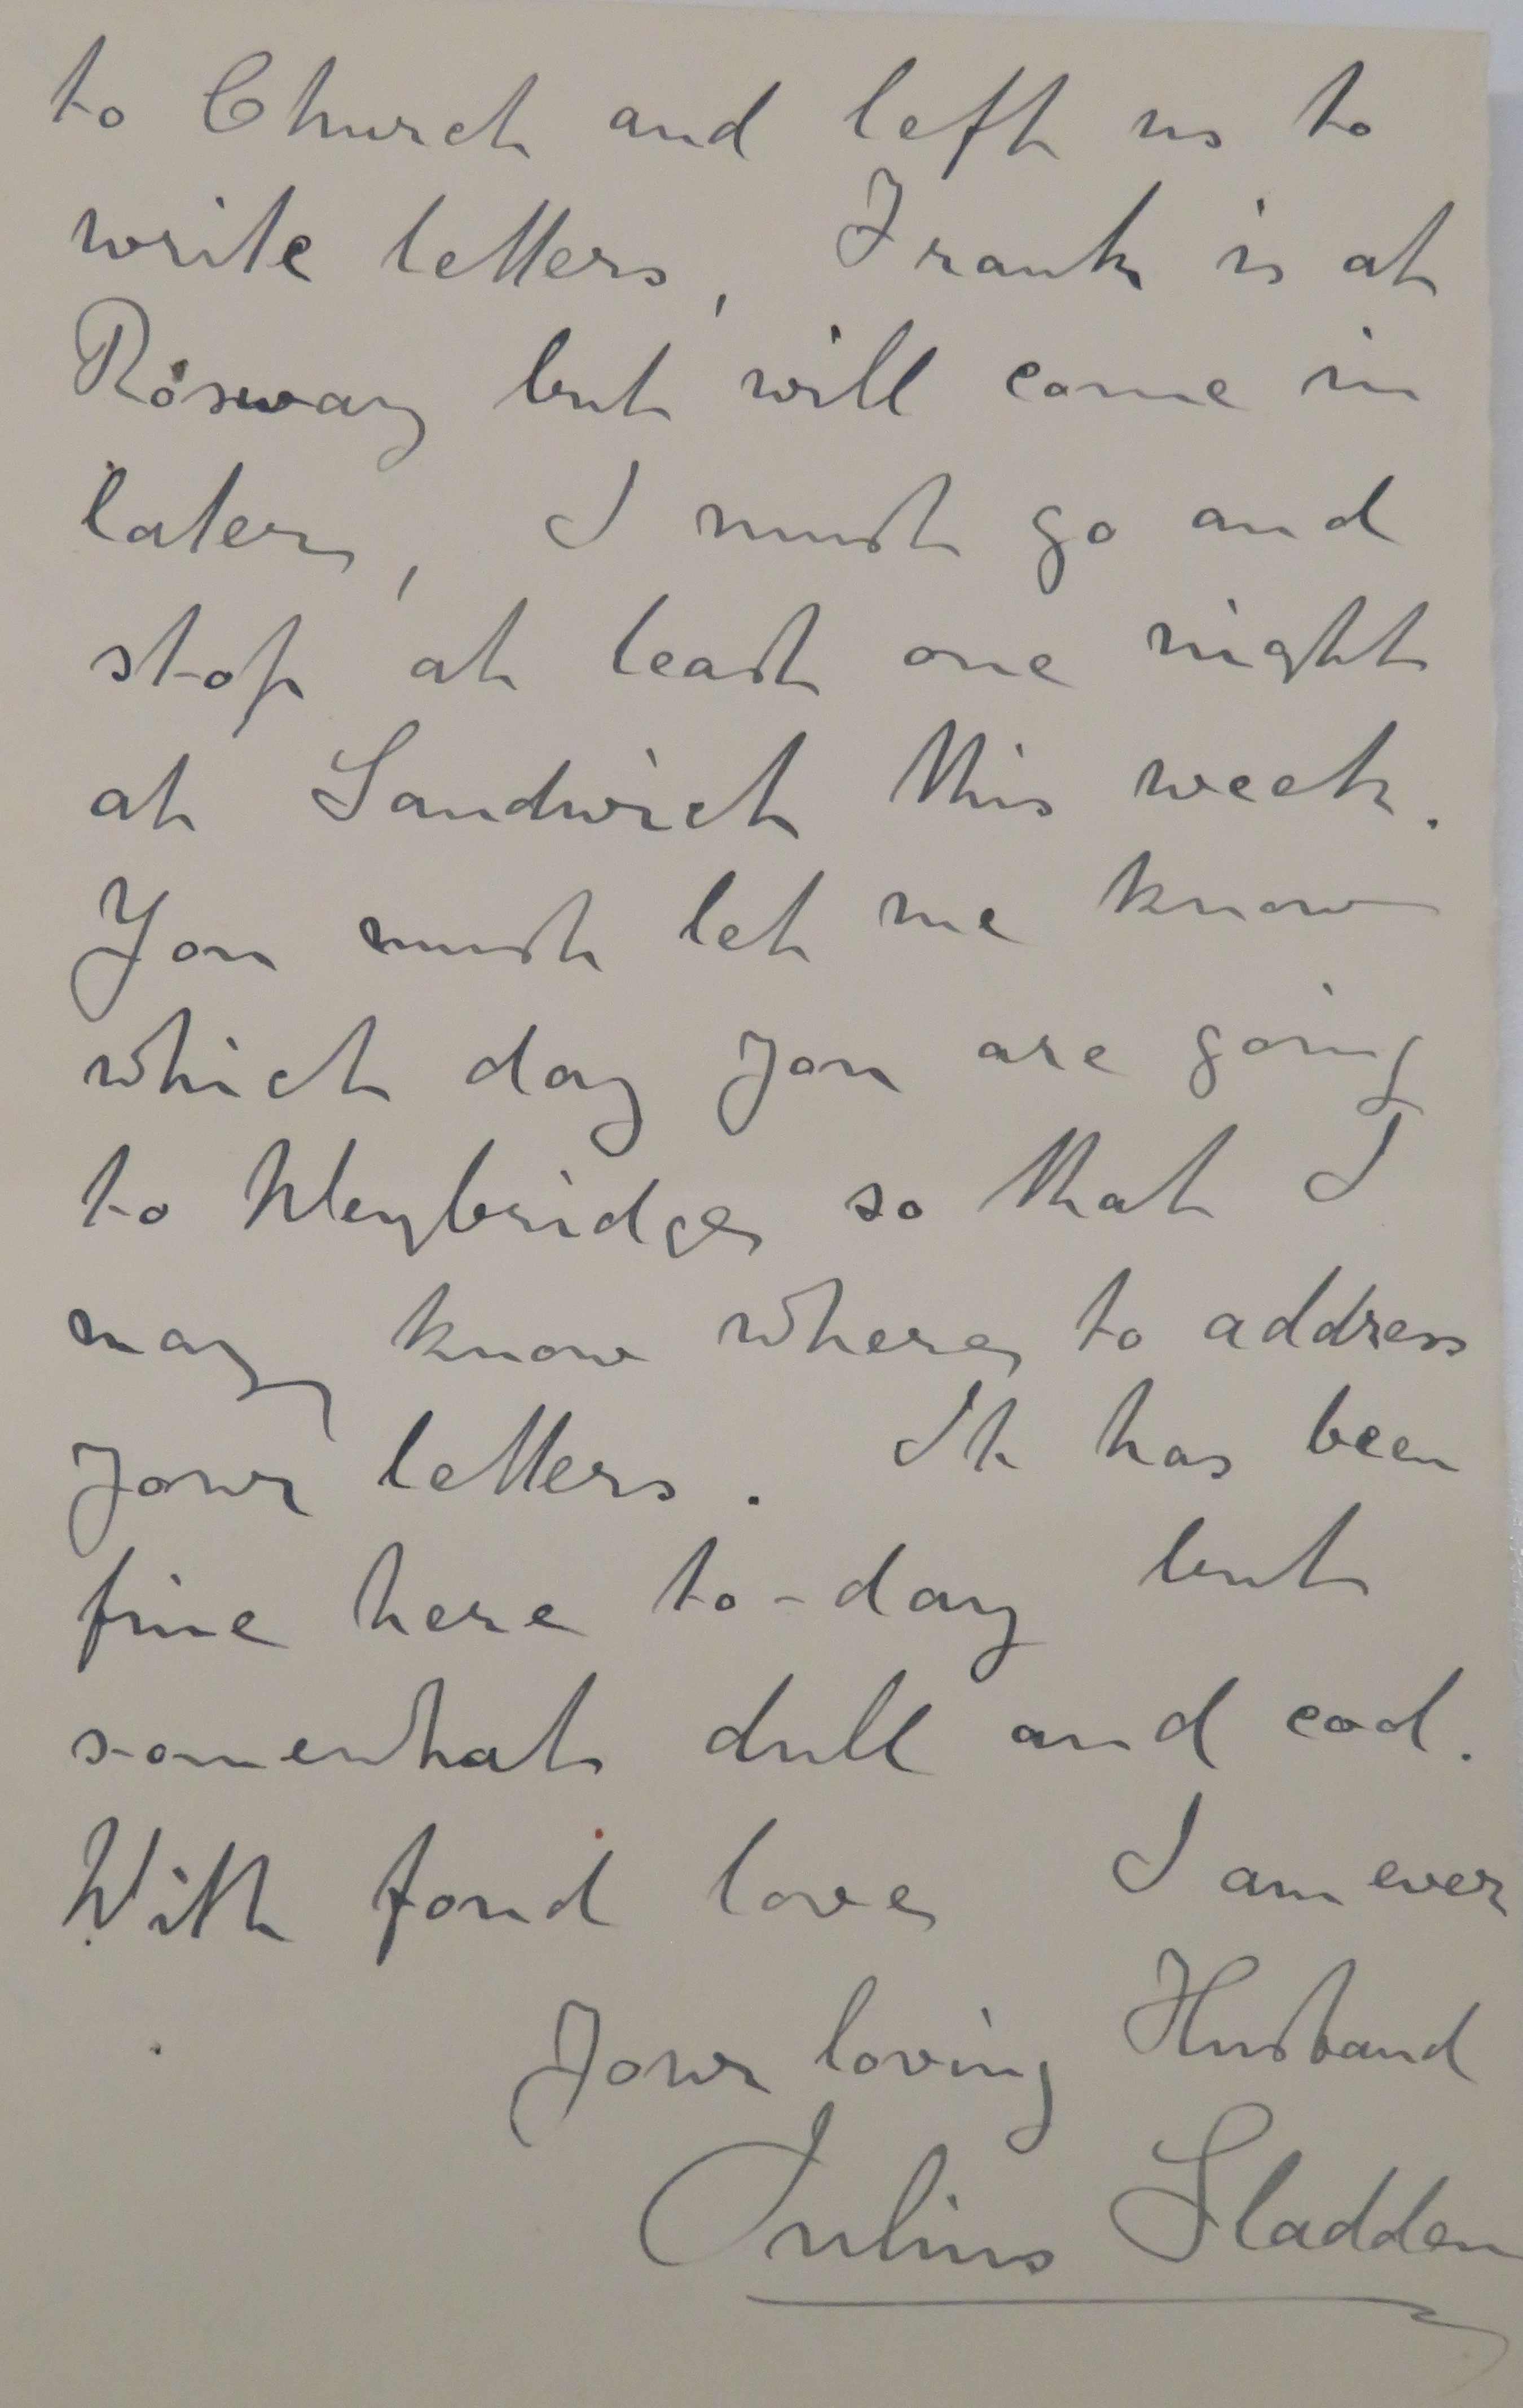 to Church and left us to
write letters, Frank is at
Rosway but will come in
later, I must go and
stop at least one night
at Sandwich this week.
You must let me know
which day you are going
to Weybridge so that I
may know where to address
your letters. It has been
fine here to-day but
somewhat dull and cool.
With fond love I am ever
Your loving Husband
Julius Sladden